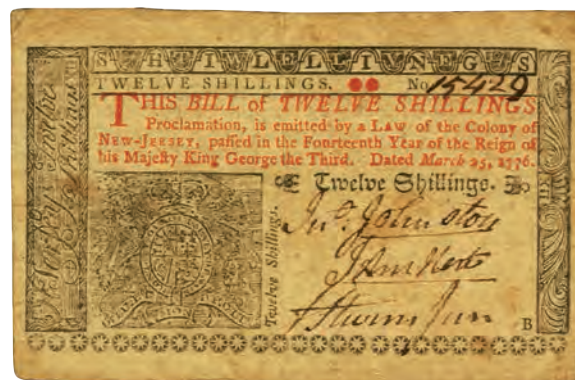 SHTIWLELLIVNEGS
TWELVE SHILLINGS. No 15429
THIS BILL of TWELVE SHILLINGS
Proclamation, is emitted by a LAW of the Colony of
NEW-JERSEY, passed in the Fourteenth Year of the Reign of
his Majesty King George the Third. Dated March 25, 1776.
Twelve Shillings.
Twelve Shillings.
Jno. Johnston
John Hart
J Stevens Jun
B